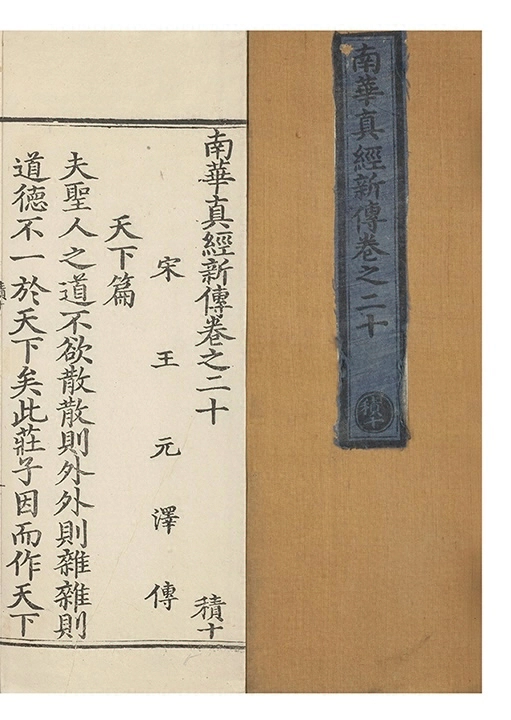 南華真經新傳卷之二十
積十
南華真經新傳卷之二十
積十
宋王元澤傳
天下篇
夫聖人之道不欲散散則外外則雜雜則
道德不一於天下矣此莊子因而作天下
積十